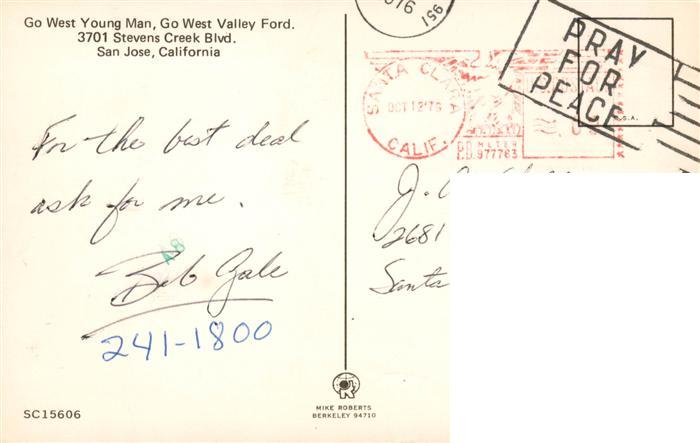 Go West Young Man, Go West Valley Ford.
3701 Stevens Creek Blvd.
San Jose, California
For the best deal
ask for me.
Bob Gale
241-1800
A8
SC15606
MIKE ROBERTS
BERKELEY 94710
1976
PRAY
FOR
PEACE
U.S.A.
SANTA CLARA
OCT 12'76
CALIF.
P.B. METER
977763
J.
2681
Santa